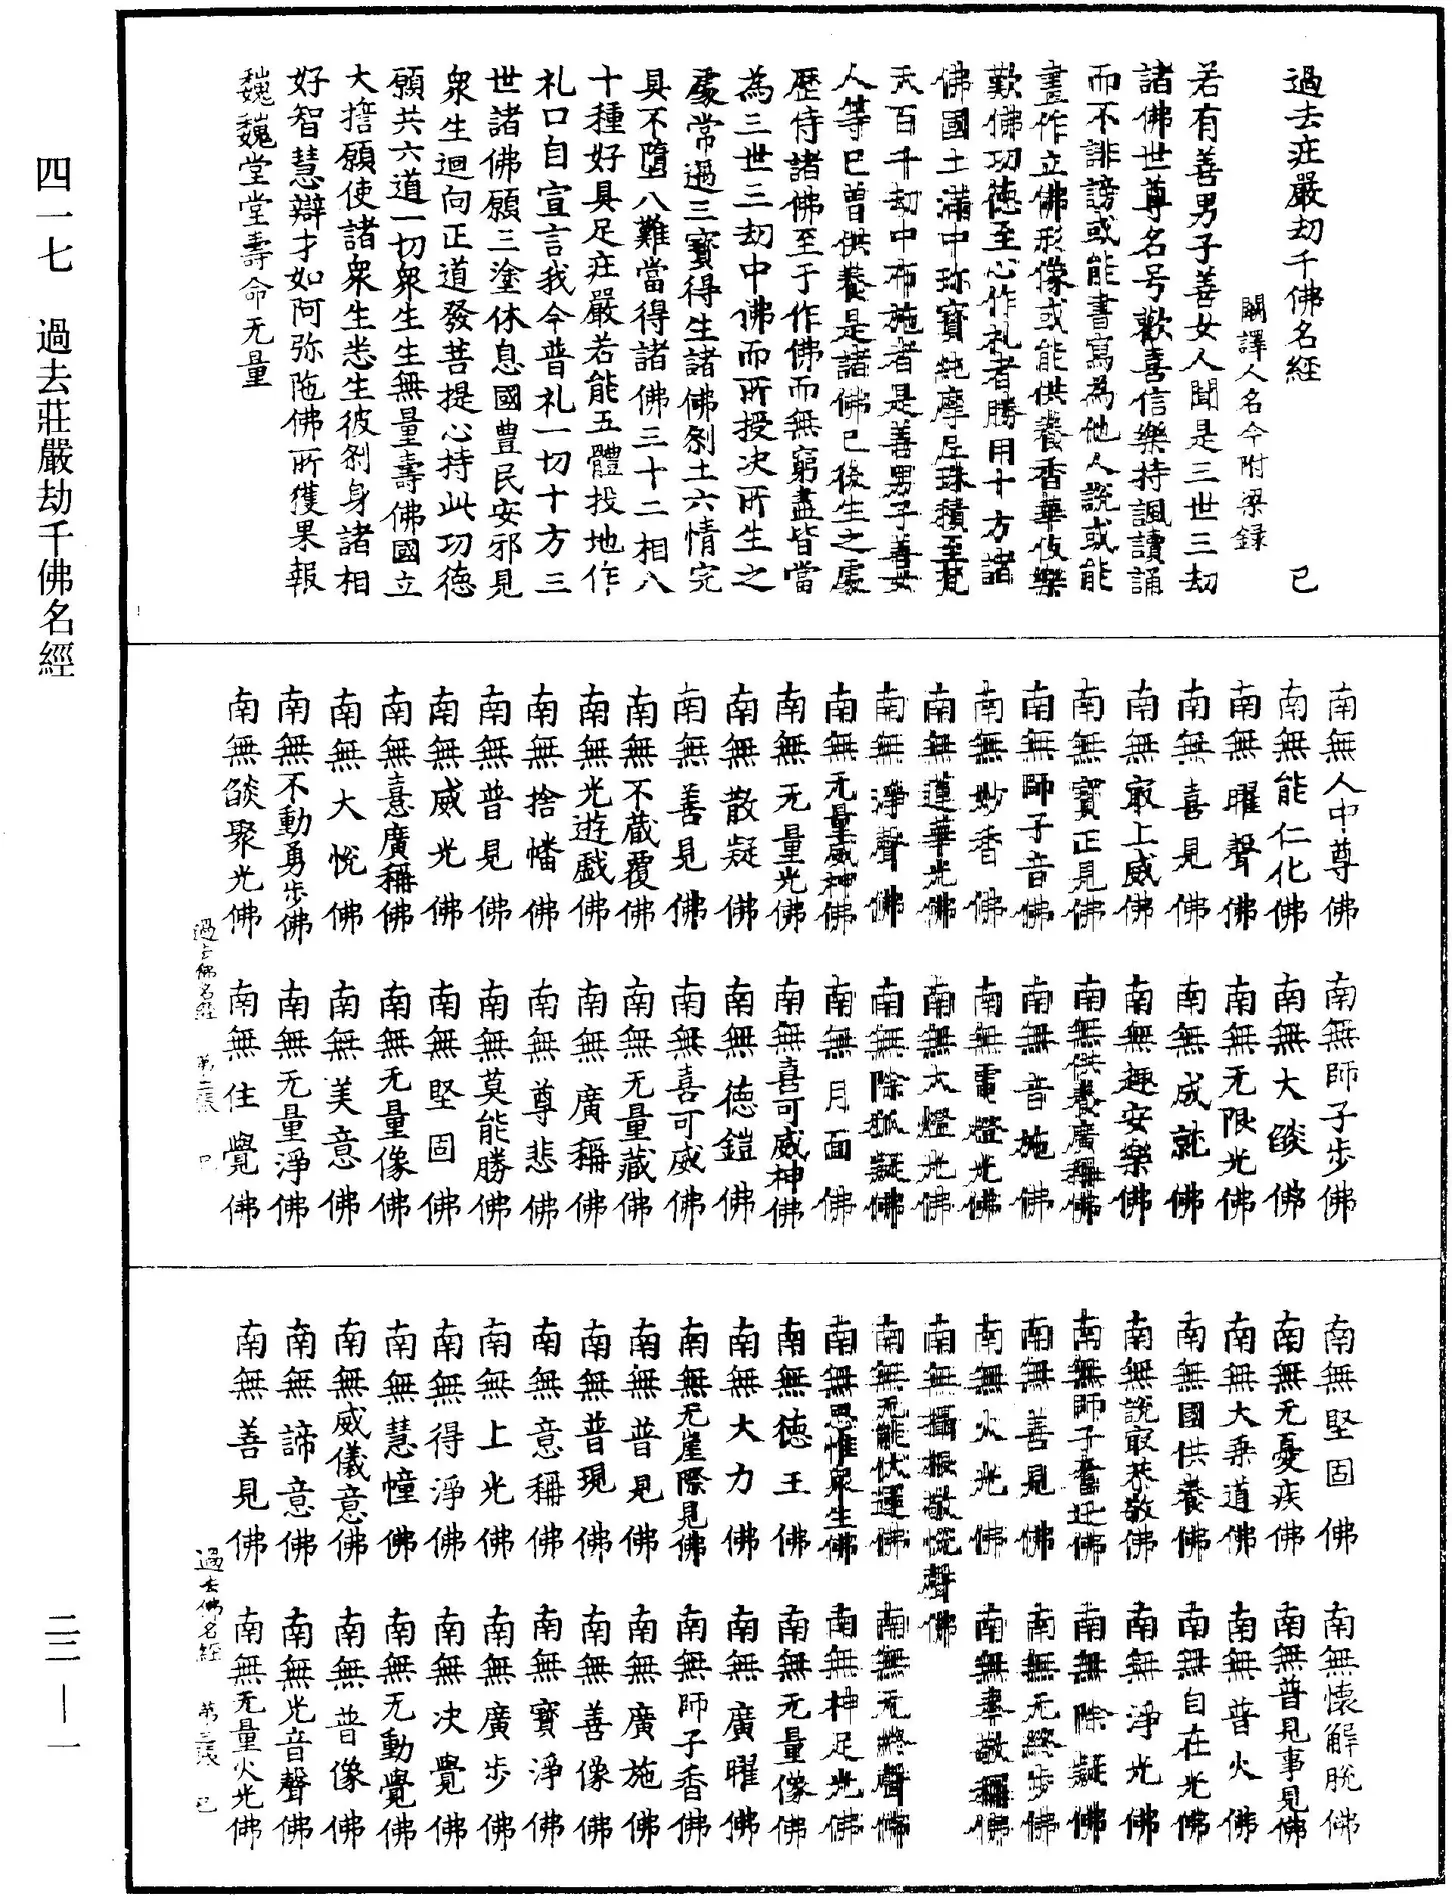 過去莊嚴劫千佛名經　己
闕譯人名今附梁錄
若有善男子善女人聞是三世三劫
諸佛世尊名号歡喜信樂持諷讀誦
而不誹謗或能書寫為他人說或能
畫作立佛形像或能供養香華伎樂
歎佛功德至心作礼者勝用十方諸
佛國土滿中珎寶純摩尼珠積至梵
天百千劫中布施者是善男子善女
人等已曾供養是諸佛已後生之處
歷侍諸佛至于作佛而無窮盡皆當
為三世三劫中佛而所授決所生之
處常遇三寶得生諸佛刹土六情完
具不墮八難當得諸佛三十二相八
十種好具足莊嚴若能五體投地作
礼口自宣言我今普礼一切十方三
世諸佛願三塗休息國豊民安邪見
衆生迴向正道發菩提心持此功德
願共六道一切衆生生無量壽佛國立
大擔願使諸衆生悉生彼刹身諸相
好智慧辯才如阿弥陁佛所獲果報
巍巍堂堂壽命无量
南無人中尊佛　南無師子步佛
南無能仁化佛　南無大燄佛
南無曜聲佛　南無无限光佛
南無喜見佛　南無成就佛
南無寂上威佛　南無趣安樂佛
南無寶正見佛　南無供養廣稱佛
南無師子音佛　南無音施佛
南無妙香佛　南無電燈光佛
南無蓮華光佛　南無大燈光佛
南無淨聲佛　南無除狐疑佛
南無无量威神佛　南無月面佛
南無无量光佛　南無喜可威神佛
南無散疑佛　南無德鎧佛
南無善見佛　南無喜可威佛
南無不蔵覆佛　南無无量藏佛
南無光遊戲佛　南無廣稱佛
南無捨幡佛　南無尊悲佛
南無普見佛　南無莫能勝佛
南無威光佛　南無堅固佛
南無憙廣稱佛　南無无量像佛
南無大悅佛　南無美意佛
南無不動勇步佛　南無无量淨佛
南無燄聚光佛　南無住覺佛
過去佛名經　第二張　己
南無堅固佛　南無懐解脫佛
南無无憂疾佛　南無普見事見佛
南無大乗道佛　南無普火佛
南無國供養佛　南無自在光佛
南無說寂恭敬佛　南無淨光佛
南無師子奮迅佛　南無除疑佛
南無善見佛　南無无終步佛
南無火光佛　南無奉敬稱佛
南無攝根敬悅聲佛
南無无能伏運佛　南無无終聲佛
南無思惟衆生佛　南無神足光佛
南無德王佛　南無无量像佛
南無大力佛　南無廣曜佛
南無无崖際見佛　南無師子香佛
南無普見佛　南無廣施佛
南無普現佛　南無善像佛
南無意稱佛　南無寶淨佛
南無上光佛　南無廣步佛
南無得淨佛　南無決覺佛
南無慧幢佛　南無无動覺佛
南無威儀意佛　南無普像佛
南無諦意佛　南無光音聲佛
南無善見佛　南無无量火光佛
過去佛名經　第三張　己
四一七　過去莊嚴劫千佛名經
二二—一